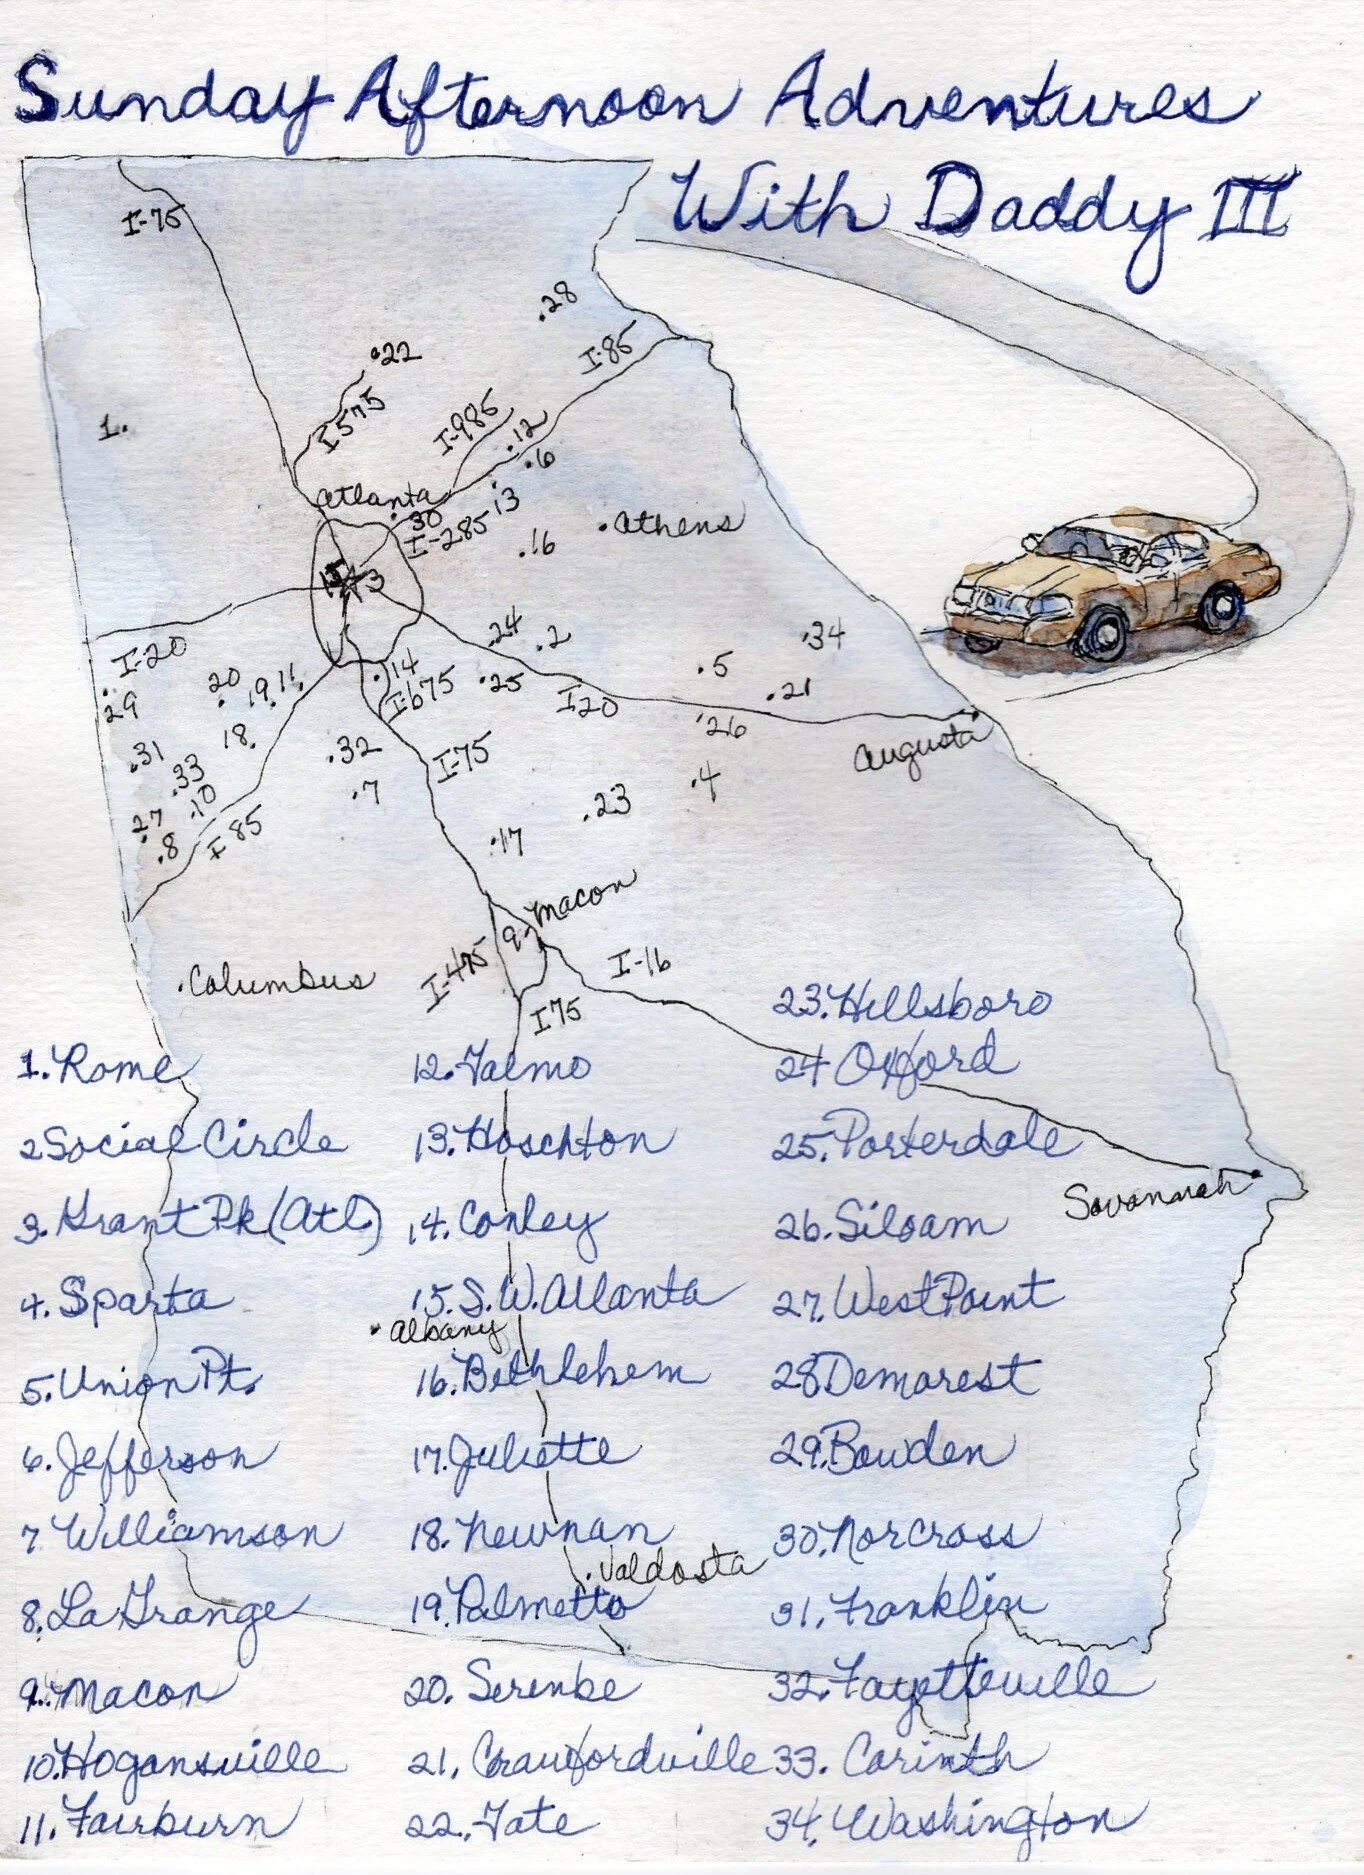 Sunday Afternoon Adventures
With Daddy III
I-75
.28
.22
I-85
I575
I-985
1.
.12
.6
Atlanta
30
13
I-285
.Athens
.16
3
.34
24
.2
I-20
.5
14
20
19.
11.
.25
I-675
I20
.21
29
.26
18.
Augusta
.31
.32
I-75
.33
.7
.4
.10
.23
27
I85
.17
.8
Macon
9.
I-475
I-16
.Columbus
I75
1. Rome
2 Social Circle
3. Grant Pk (Atl.)
4. Sparta
5. Union Pt.
6. Jefferson
7 Williamson
8. LaGrange
9. Macon
10. Hogansville
11. Fairburn
12. Talmo
13. Hoschton
14. Conley
15. S.W. Atlanta
.Albany
16. Bethlehem
17. Juliette
18. Newnan
.Valdosta
19. Palmetto
20. Serenbe
21. Crawfordville
22. Tate
23. Hillsboro
24 Oxford
25. Porterdale
Savannah
26. Siloam
27. West Point
28 Demorest
29. Bowden
30. Norcross
31. Franklin
32. Fayetteville
33. Corinth
34. Washington